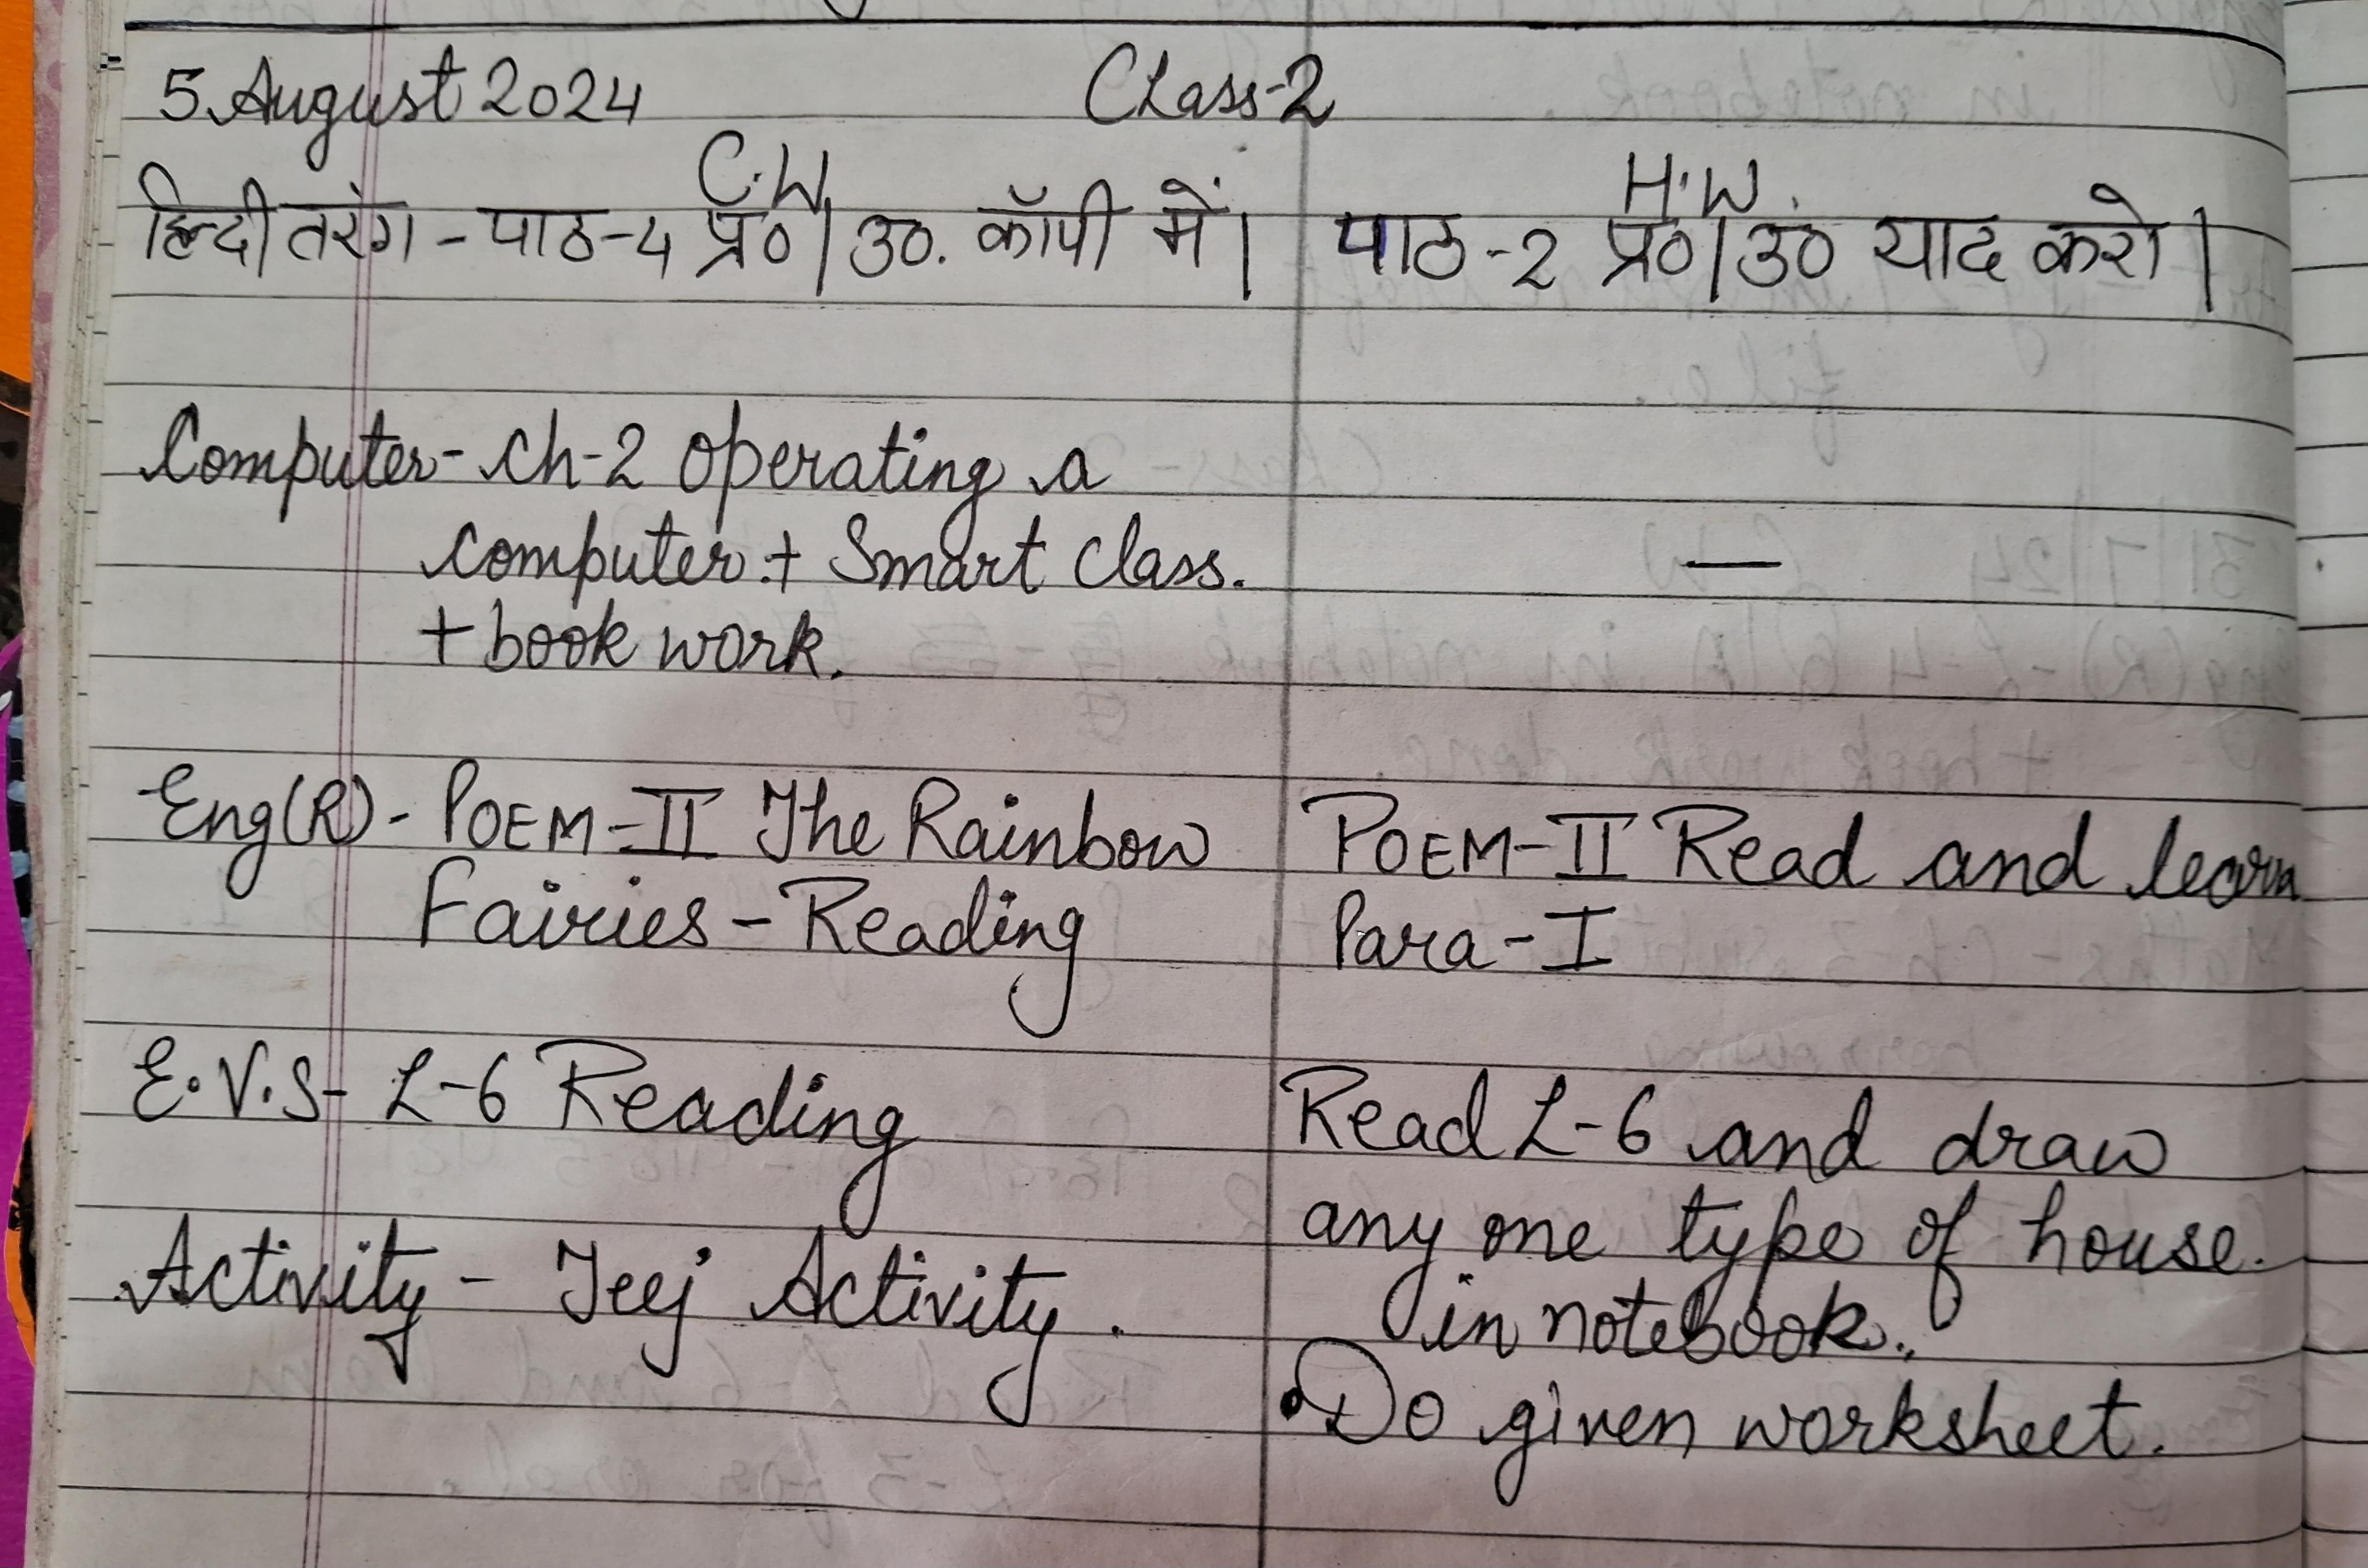 5 August 2024 Class-2
C.W H.W.
हिन्दी तरंग - पाठ-4 प्र०|उ०. कॉपी में| पाठ-2 प्र०|उ० याद करो|
Computer - Ch-2 Operating a
computer + Smart Class.
+ book work. —
Eng(R) - POEM-II The Rainbow
Fairies - Reading
POEM-II Read and learn
Para-I
E.V.S- L-6 Reading
Read L-6 and draw
any one type of house.
in notebook.
Activity - Teej Activity.
• Do given worksheet.